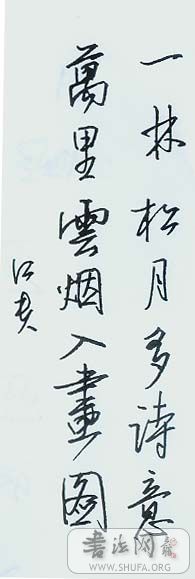 一林松月多诗意
萬里雲烟入畫图
书法网
WWW.SHUFA.ORG